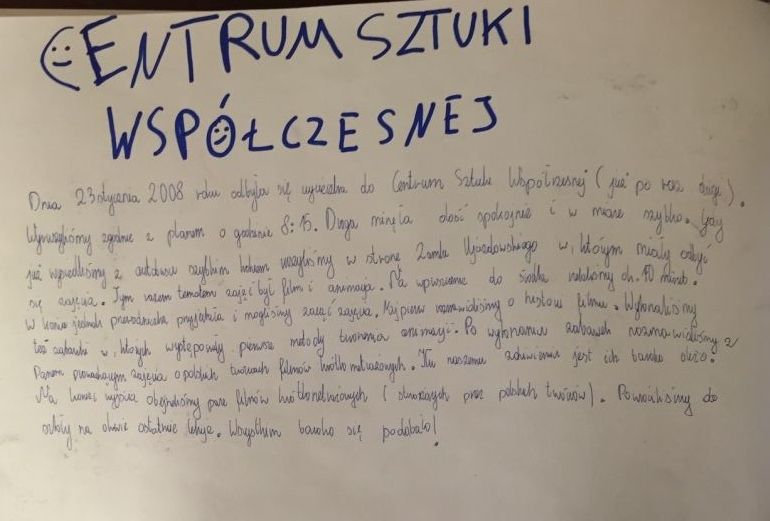 CENTRUM SZTUKI
WSPÓŁCZESNEJ
Dnia 23 stycznia 2008 roku odbyła się wycieczka do Centrum Sztuki Współczesnej (już po raz drugi).
Wyruszyliśmy zgodnie z planem o godzinie 8:15. Droga minęła dość spokojnie i w miarę szybko. Gdy
już wysiedliśmy z autokaru szybkim krokiem ruszyliśmy w stronę Zamku Ujazdowskiego w którym miały odbyć
się zajęcia. Tym razem tematem zajęć był film i animacja. Na wpuszczenie do środka czekaliśmy ok. 10 minut.
W końcu jednak przewodniczka przyszła i mogliśmy zacząć zajęcia. Najpierw rozmawialiśmy o historii filmu. Wykonaliśmy
też zabawki w których występowały pierwsze metody tworzenia animacji. Po wykonaniu zabawek rozmawialiśmy z
Panem prowadzącym zajęcia o polskich twórcach filmów krótkometrażowych. Ku naszemu zdziwieniu jest ich bardzo dużo.
Na koniec wyjścia obejrzeliśmy parę filmów krótkometrażowych (stworzonych przez polskich twórców). Powróciliśmy do
szkoły na dwie ostatnie lekcje. Wszystkim bardzo się podobało!